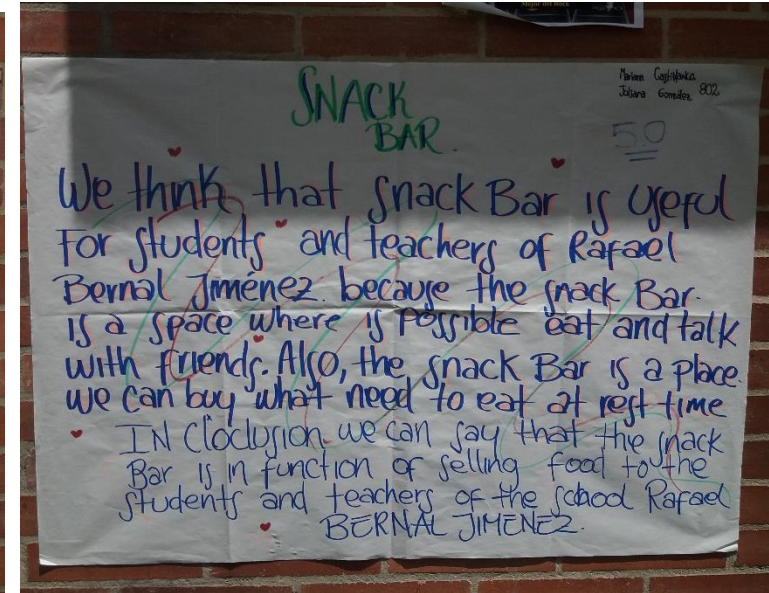 Mejor del Rock
SNACK
BAR.
Mariana
Juliana González 802
5.0
We think that snack Bar is useful
For students and teachers of Rafael
Bernal Jiménez. because the snack Bar.
is a space where is possible eat and talk
with friends. Also, the snack Bar is a place.
we can buy what need to eat at rest time
IN Cloclusion we can say that the snack
Bar is in function of selling food to the
students and teachers of the school Rafael
BERNAL JIMENEZ.